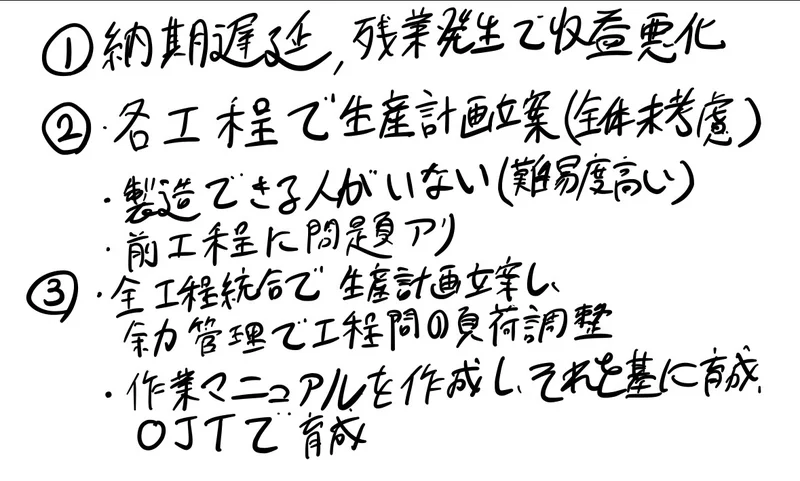 ① 納期遅延, 残業発生で収益悪化
② ・各工程で生産計画立案(全体未考慮)
・製造できる人がいない(難易度高い)
・前工程に問題アリ
③ ・全工程統合で生産計画立案し、
余力管理で工程間の負荷調整
・作業マニュアルを作成し、それを基に育成、
OJTで育成